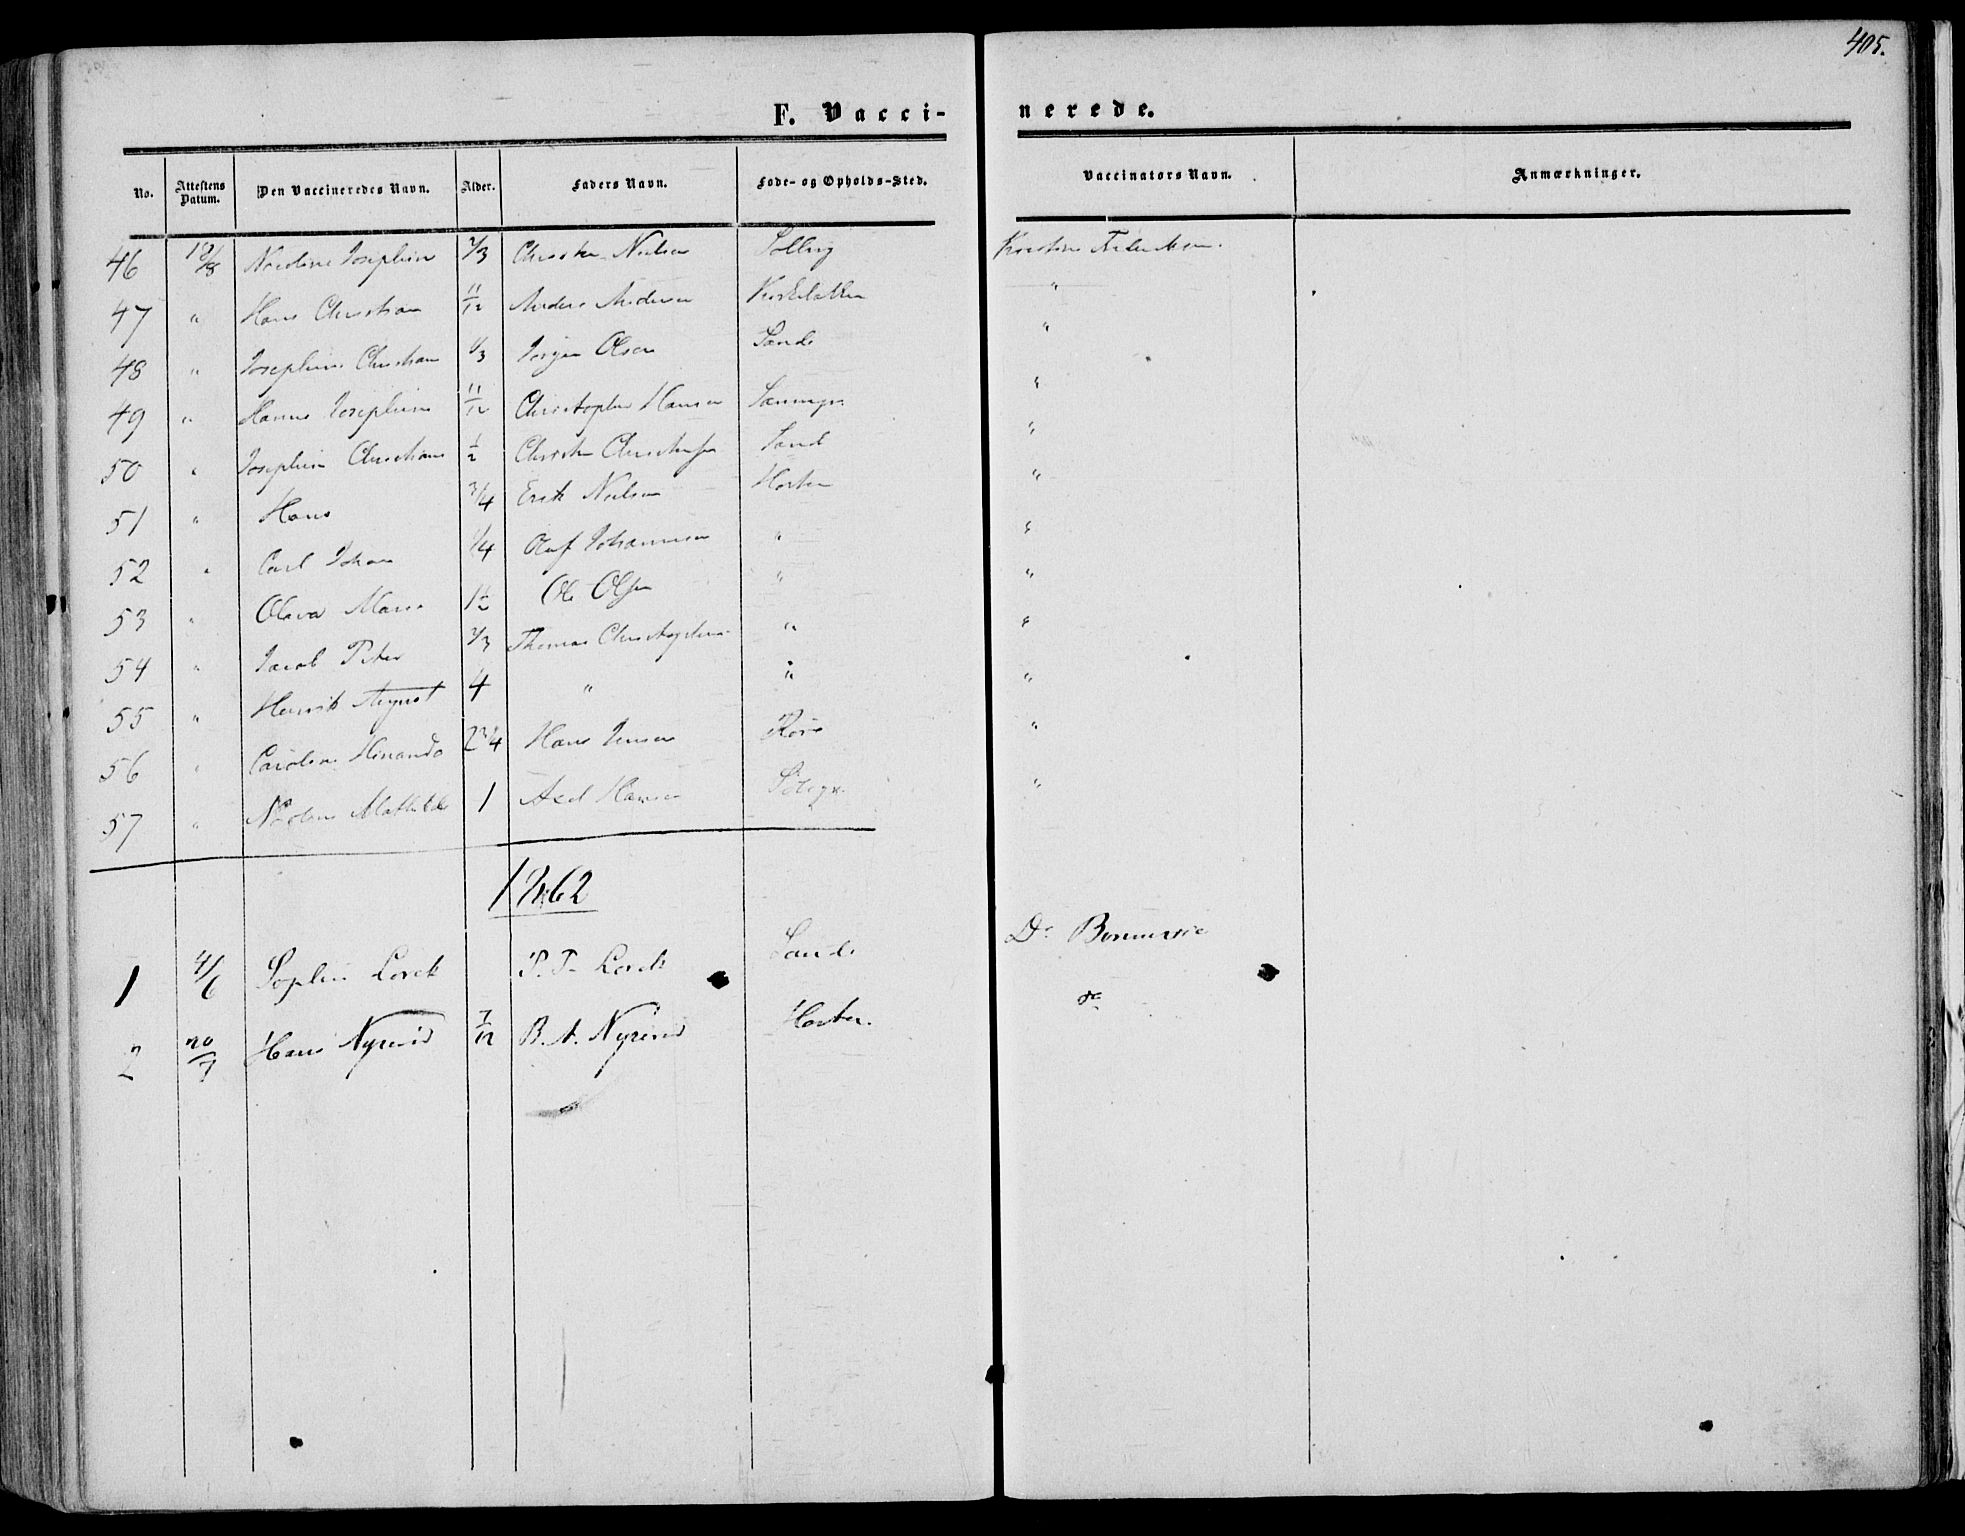 405.
F. Vacci- nerede.
No. Attestens Datum. Den Vaccineredes Navn. Alder. Faders Navn. Føde- og Opholds-Sted. Vaccinators Navn. Anmærkninger.
46 18/8 Nicoline Josephine 2/3 Christen Nielsen
47 " Hans Christian 11/12 Anders Andersen "
48 " Josephine Christiane 1/3 Jörgen Olsen Sande "
49 " Hanne Josephine 11/12 Christopher Hansen "
50 " Josephine Christiane 1/2 Christen Sand "
51 " Hans 3/4 Erik Nielsen Horten "
52 " Carl Johan 1/4 Oluf Johannesen " "
53 " Olava Marie 1 1/2 Ole Olsen " "
54 " Jacob Peter 2/3 Thomas Christophersen " "
55 " Henrik August 4 " " "
56 " Caroline 2 3/4 Hans Jensen "
57 " Mathilde 1 Axel Hansen "
1862
1 4/6 Sophie Lorck P. T. Lorck Sande Dr
2 20/7 Hans 7/12 B. A. Horten. do